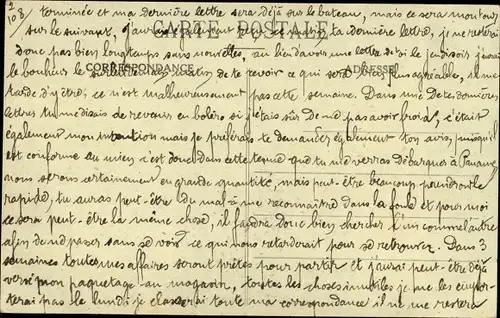 2/108
terminée et ma dernière lettre sera déjà sur le bateau, mais ce sera mon tour
CARTE POSTALE
sur le suivant, j'aurai également ta dernière lettre, je ne resterai
donc pas bien longtemps sans nouvelles, au lieu d'avoir une lettre d'ici le jeudi soir j'aurai
CORRESPONDANCE
ADRESSE
le bonheur de te revoir ce qui sera bien plus agréable, il me
tarde d'y être, ce n'est malheureusement pas cette semaine. Dans une de tes dernières
lettres tu me disais de revenir en boléro si j'étais sûr de ne pas avoir froid, c'était
également mon intention mais je préférais te demander également ton avis, puisqu'il
est conforme au mien c'est donc dans cette tenue que tu me verras débarquer à
nous serons certainement en grande quantité, mais peut-être beaucoup prendront le
rapide, tu auras peut-être du mal à me reconnaître dans la foule et pour moi
ce sera peut-être la même chose, il faudra donc bien chercher l'un comme l'autre
afin de ne passer sans se voir ce qui nous retarderait pour se retrouver. Dans 3
semaines toutes mes affaires seront prêtes pour partir et j'aurai peut-être déjà
versé mon paquetage au magasin, toutes les choses inutiles je ne les empor-
terai pas le lundi je classerai toute ma correspondance il ne me restera